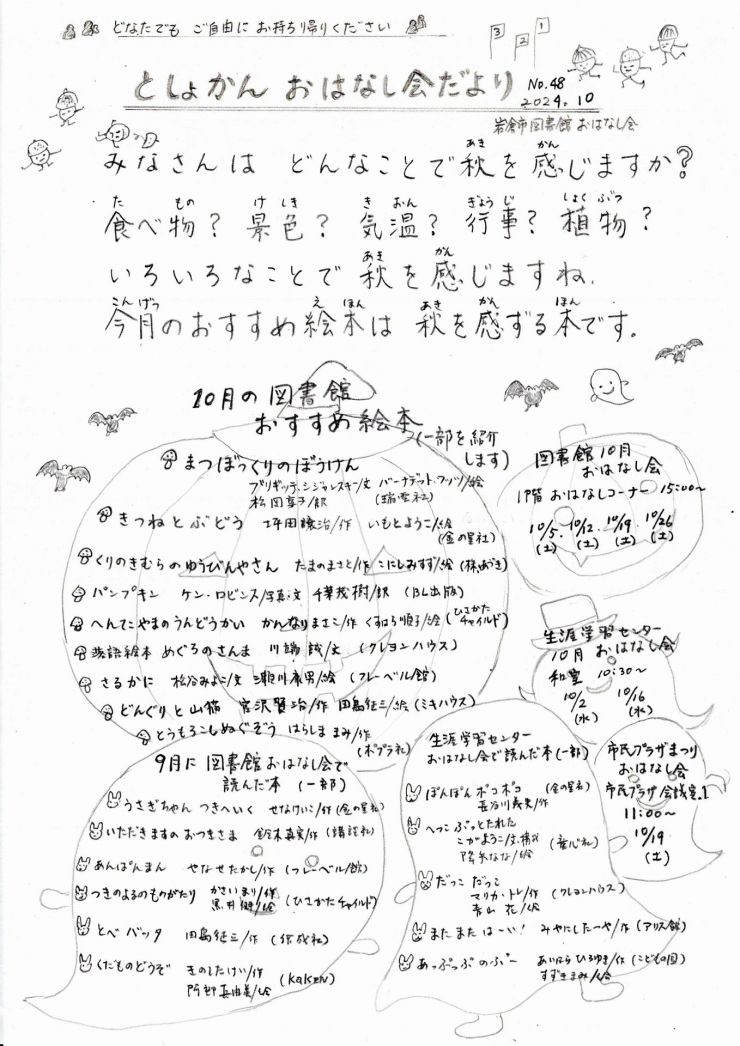 どなたでも ご自由に お持ち帰りください
3 2 1
としょかん おはなし会だより
No.48
2024.10
岩倉市図書館 おはなし会
みなさんは どんなことで秋を感じますか?
あき かん
食べ物? 景色? 気温? 行事? 植物?
た もの け しき き おん ぎょう じ しょく ぶつ
いろいろなことで 秋を感じますね。
あき かん
今月のおすすめ絵本は 秋を感ずる本です。
こん げつ え ほん あき かん ほん
10月の図書館
おすすめ絵本
(一部を紹介
します)
まつぼっくりのぼうけん
ブリギッテ・シジャンスキー/文 バーナデット・ワッツ/絵
松岡享子/訳 (瑞雲社)
きつねとぶどう 坪田譲治/作 いもとようこ/絵
(金の星社)
くりのきむらのゆうびんやさん たまのまさと/作 こにしみすず/絵 (梓あづき)
パンプキン ケン・ロビンス/写真・文 千葉茂樹/訳 (BL出版)
へんてこやまのうんどうかい かんなりまさこ/作 くすはら順子/絵 (ひさかた
チャイルド)
落語絵本 めぐろのさんま 川端誠/文 (クレヨンハウス)
さるかに 松谷みよ子/文 瀬川康男/絵 (フレーベル館)
どんぐりと山猫 宮沢賢治/作 田島征三/絵 (ミキハウス)
とうもろこしぬぐぞう はらしま まみ/作
(ポプラ社)
図書館10月
おはなし会
1階 おはなしコーナー 15:00～
10/5 10/12 10/19 10/26
(土) (土) (土) (土)
生涯学習センター
10月 おはなし会
和室 10:30～
10/2 10/16
(水) (水)
市民プラザまつり
おはなし会
市民プラザ会議室1
11:00～
10/19
(土)
9月に図書館おはなし会で
読んだ本 (一部)
うさぎちゃん つきへいく せなけいこ/作 (金の星社)
いただきますの おつきさま 鈴木真実/作 (講談社)
あんぱんまん やなせたかし/作 (フレーベル館)
つきのよるのものがたり かさいまり/作
黒井健/絵 (ひさかたチャイルド)
とべ バッタ 田島征三/作 (偕成社)
くだものどうぞ きのしたけい/作
阿部真由美/絵 (KADOKEN)
生涯学習センター
おはなし会で読んだ本(一部)
ぽんぽん ポコポコ (金の星社)
長谷川義史/作
へっこ ぷっとたれた
こがようこ/文・構成
降矢なな/絵 (童心社)
だっこ だっこ
マリカ・ドレ/作
青山 花/絵 (クレヨンハウス)
またまた はーい! みやにしたつや/作 (アリス館)
あっぷっぷのぷー あいはら ひろゆき/作 (こどもの国)
すずきまみ/絵